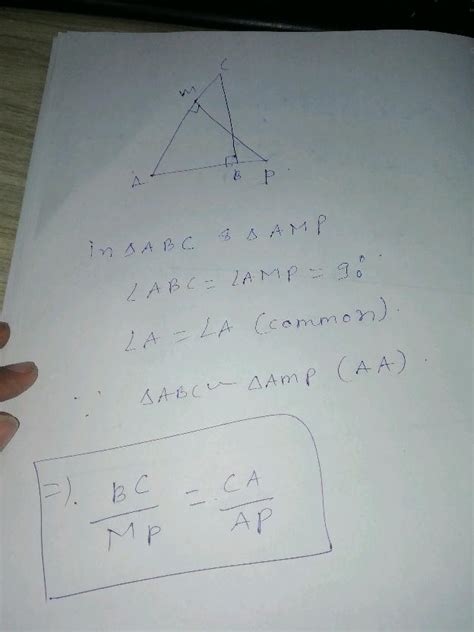 C
M
A
B
P
In △ABC & △AMP
∠ABC = ∠AMP = 90°
∠A = ∠A (common).
∵ △ABC ~ △AMP (AA).
=). BC/MP = CA/AP